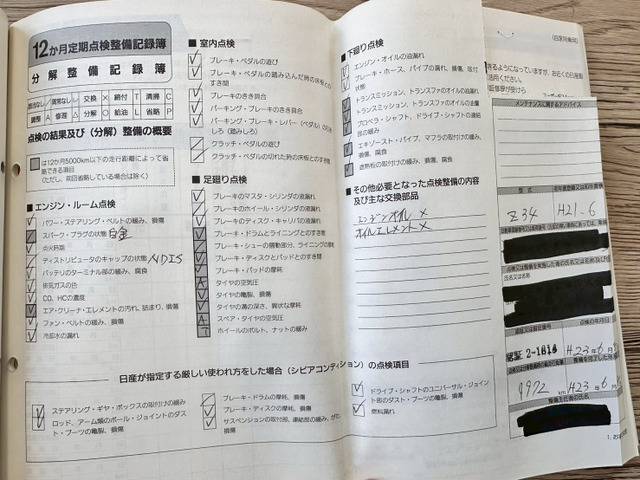 12か月定期点検整備記録簿
分解整備記録簿
点検の結果及び（分解）整備の概要
は12か月5000km以下の走行距離によって省
略できる項目
（ただし、前回省略している場合は除く）
■エンジン・ルーム点検
パワー・ステアリング・ベルトの緩み、損傷
スパーク・プラグの状態 白金
点火時期
ディストリビュータのキャップの状態 NDIS
バッテリのターミナル部の緩み、腐食
排気ガスの色
CO、HCの濃度
エア・クリーナ・エレメントの汚れ、詰まり、損傷
ファン・ベルトの緩み、損傷
冷却水の漏れ
■室内点検
ブレーキ・ペダルの遊び
ブレーキ・ペダルの踏み込んだ時の床板との
すき間
ブレーキのきき具合
パーキング・ブレーキのきき具合
パーキング・ブレーキ・レバー（ペダル）の引き
しろ（踏みしろ）
クラッチ・ペダルの遊び
クラッチ・ペダルの切れた時の床板とのすき間
■足廻り点検
ブレーキのマスタ・シリンダの液漏れ
ブレーキのホイール・シリンダの液漏れ
ブレーキのディスク・キャリパの液漏れ
ブレーキ・ドラムとライニングとのすき間
ブレーキ・シューの摺動部分、ライニングの摩耗
ブレーキ・ディスクとパッドとのすき間
ブレーキ・パッドの摩耗
タイヤの空気圧
タイヤの亀裂、損傷
タイヤの溝の深さ、異状な摩耗
スペア・タイヤの空気圧
ホイールのボルト、ナットの緩み
■下廻り点検
エンジン・オイルの油漏れ
ブレーキ・ホース、パイプの漏れ、損傷、取付
状態
トランスミッション、トランスファのオイルの油漏れ
トランスミッション、トランスファのオイルの油量
プロペラ・シャフト、ドライブ・シャフトの連結
部の緩み
エキゾースト・パイプ、マフラの取付けの緩み、
損傷、腐食
遮熱板の取付けの緩み、損傷、腐食
■その他必要となった点検整備の内容
及び主な交換部品
エンジンオイル ×
オイルエレメント ×
日産が指定する厳しい使われ方をした場合（シビアコンディション）の点検項目
ステアリング・ギヤ・ボックスの取付けの緩み
ロッド、アーム類のボール・ジョイントのダス
ト・ブーツの亀裂、損傷
ブレーキ・ドラムの摩耗、損傷
ブレーキ・ディスクの摩耗、損傷
サスペンションの取付部、連結部の緩み、がた、
損傷
ドライブ・シャフトのユニバーサル・ジョイン
ト部のダスト・ブーツの亀裂、損傷
燃料漏れ
メンテナンスに関するアドバイス
型 式
Z34
H21.6
2-1814
H23年6月
9972 km
H23年6
整備主任者の氏名